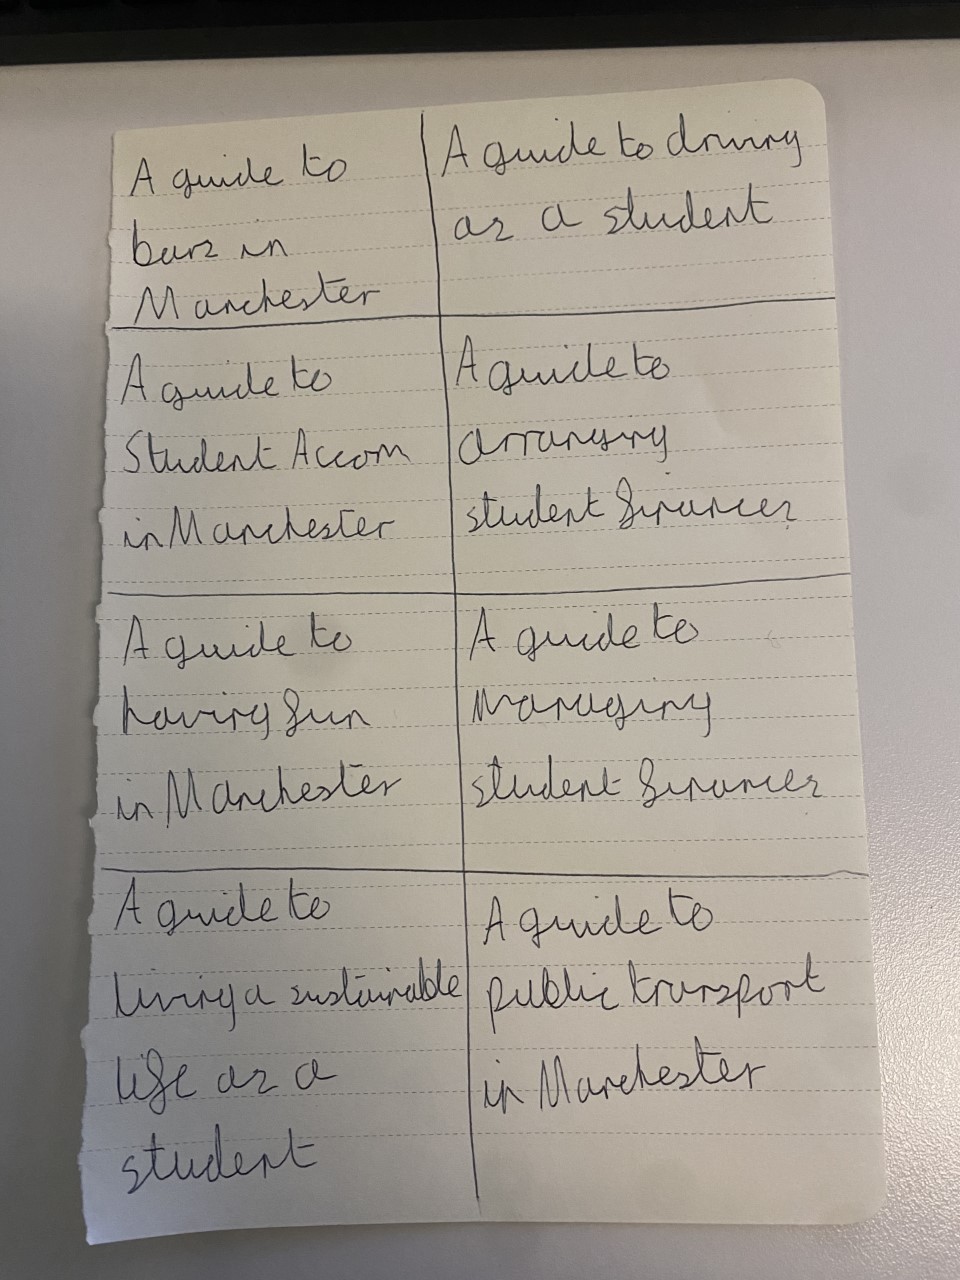 A guide to
bars in
Manchester
A guide to driving
as a student
A guide to
Student Accom
in Manchester
A guide to
arranging
student finances
A guide to
having fun
in Manchester
A guide to
managing
student finances
A guide to
living a sustainable
life as a
student
A guide to
public transport
in Manchester